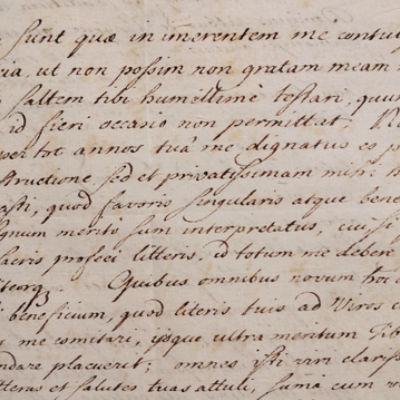 sunt quæ in imerentem me contul
ia, ut non possim non gratam meam
saltem tibi humillimè testari, quum
id fieri occasio non permittat;
per tot annos tuâ me dignatus es p
structione sed et privatissimam mihi h
asti, quod favoris singularis atque bene
ignum merito sum interpretatus, cui si
sacris profeci litteris, id totum me debere
iturq3. Quibus omnibus novum hoc
beneficium, quod literis tuis ad Viros c
me comitari, iisque ultra meritum Tib
ndare placuerit; omnes isti viri clariss
tteras et salutes tuas attuli, sumâ cum